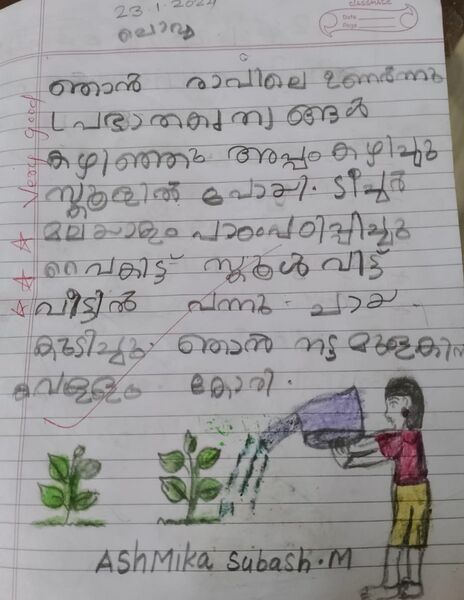 23.1.2024
ചൊവ്വ
classmate
Date
Page
ഞാൻ രാവിലെ ഉണർന്നു
പ്രഭാതകൃത്യങ്ങൾ
കഴിഞ്ഞു അപ്പം കഴിച്ചു
സ്കൂളിൽ പോയി. ടീച്ചർ
മലയാളം പാഠംപഠിപ്പിച്ചു
വൈകിട്ട് സ്കൂൾ വിട്ട്
വീട്ടിൽ വന്നു. ചായ
കുടിച്ചു. ഞാൻ നട്ട മുളകിന്
വെള്ളം കോരി.
Very good
AshMika Subash.M